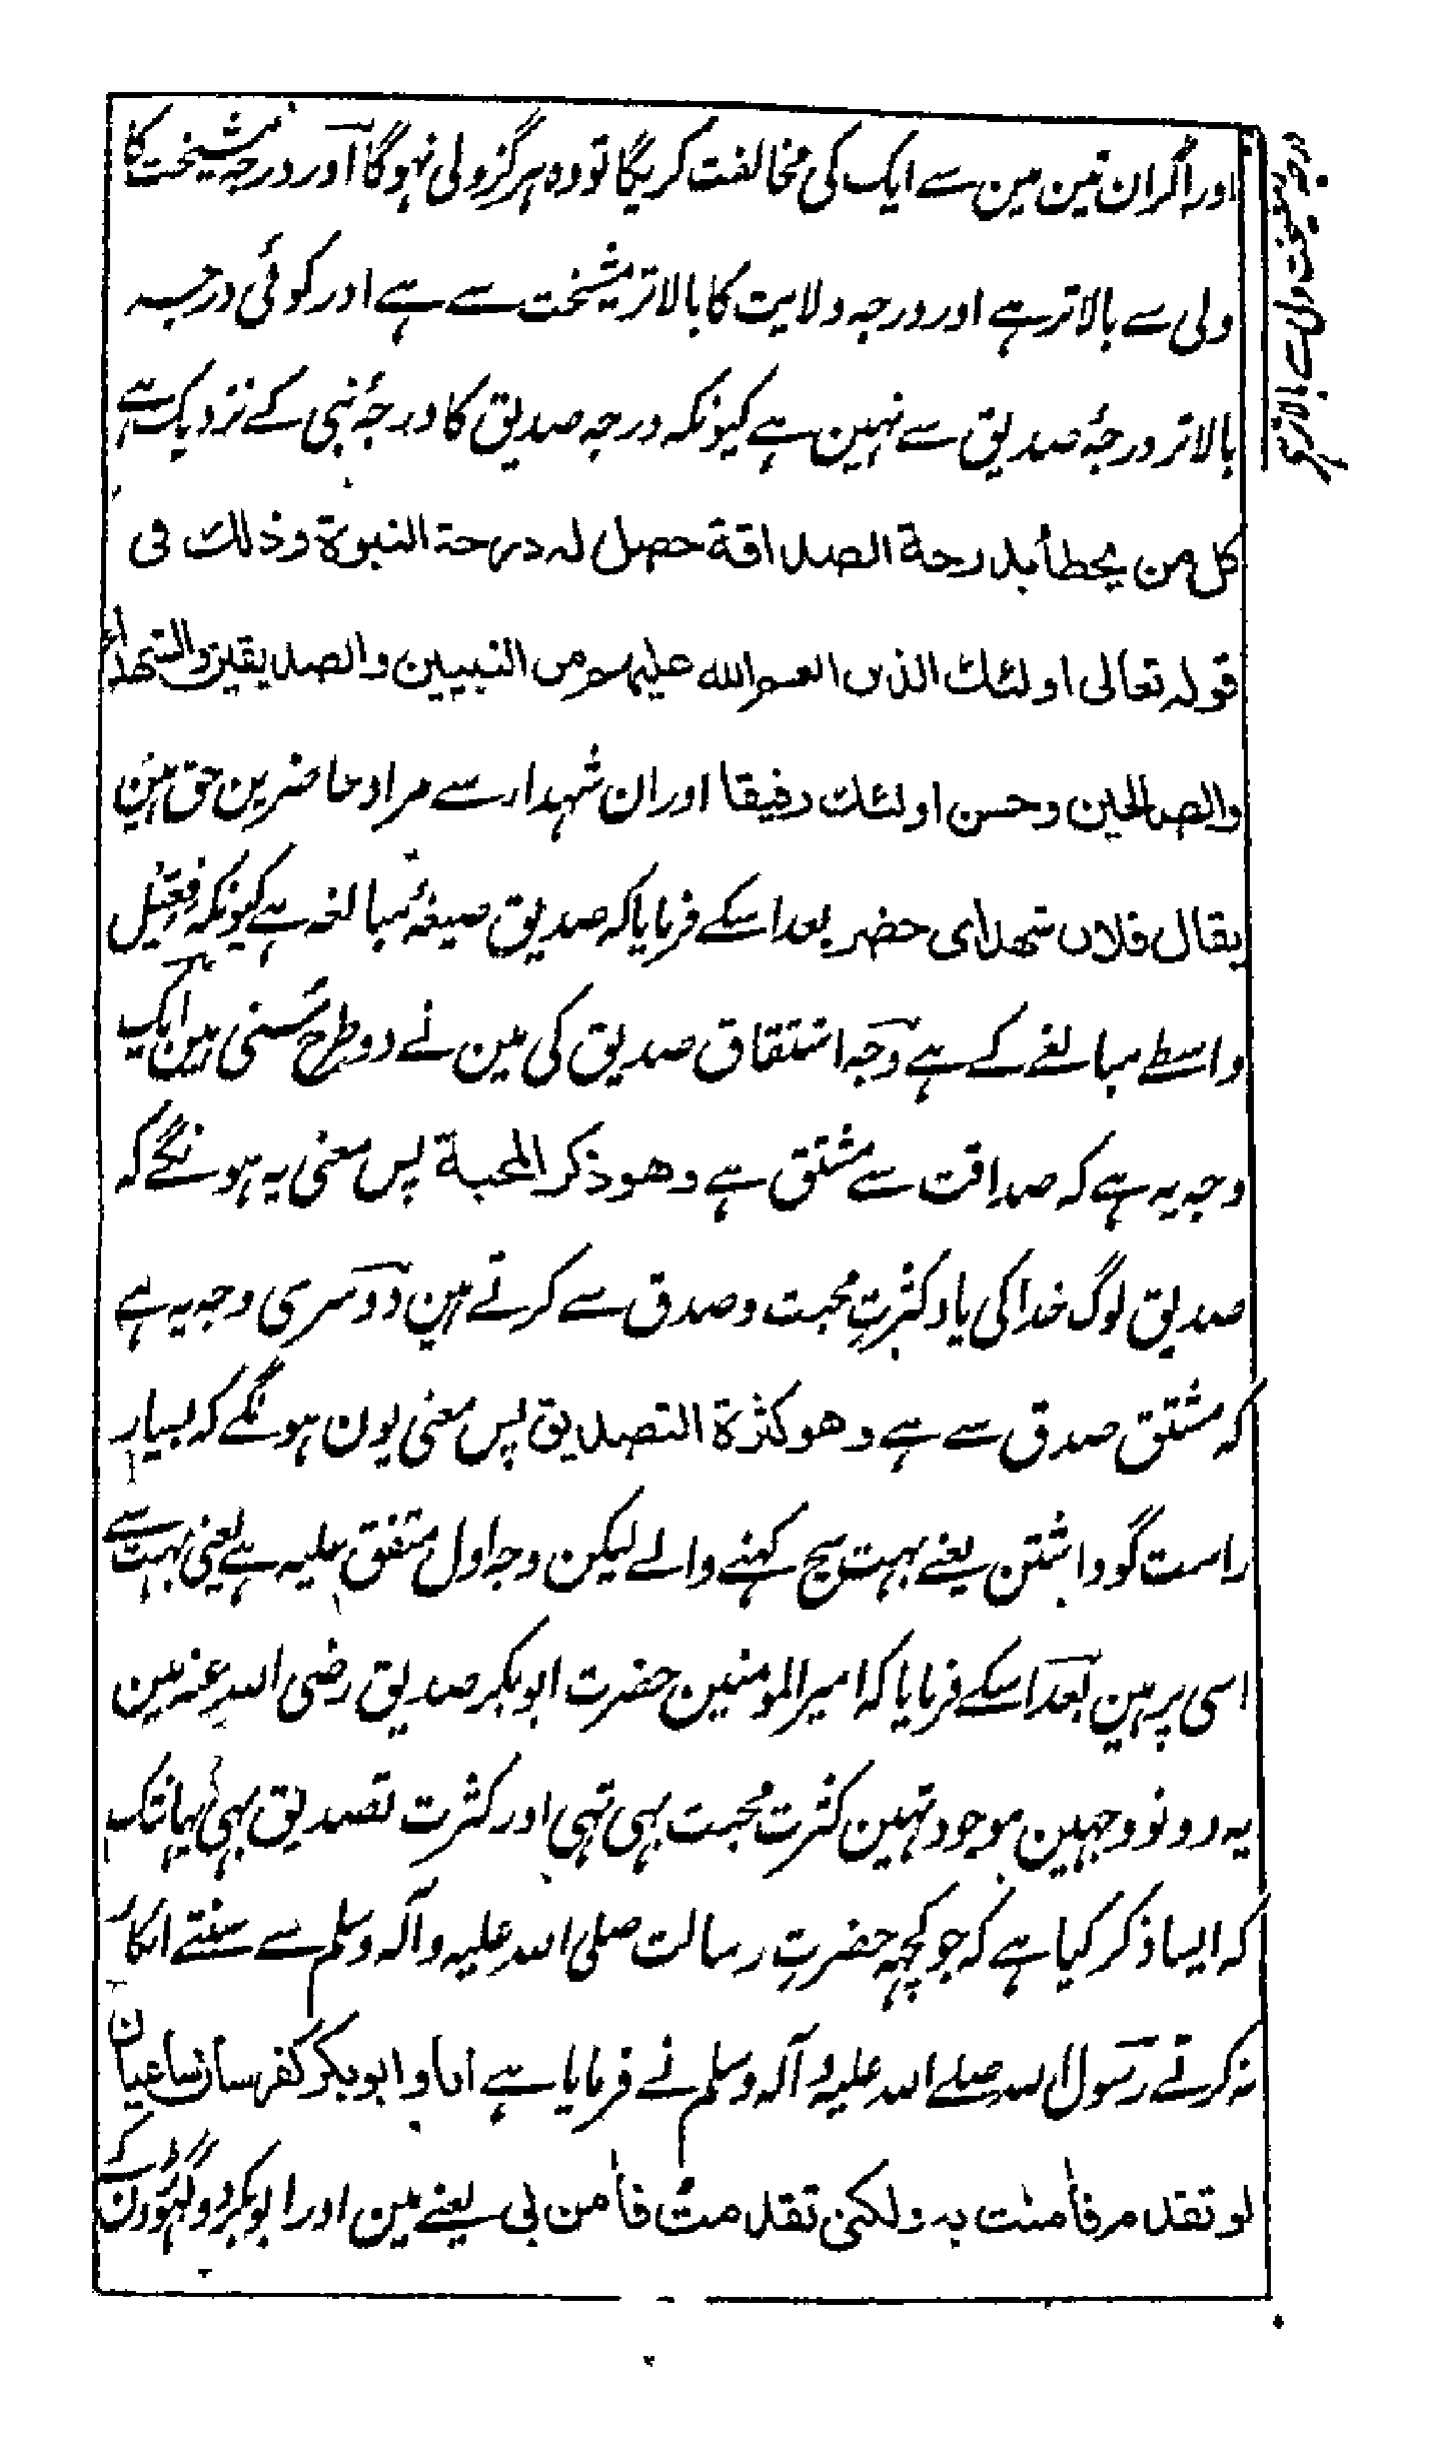 اور اگر ان تین مین سے ایک کی مخالفت کریگا تو وہ ہرگز ولی نہوگا اور درجہ مشیخت کا
ولی سے بالاتر ہے اور درجہ ولایت کا بالاتر مشیخت سے ہے اور کوئی درجہ
بالاتر درجۂ صدیق سے نہین ہے کیونکہ درجہ صدیق کا درجۂ نبی کے نزدیک ہے
کل من یخطأ بدرجة الصداقة حصل لہ درجة النبوة وذلك فی
قولہ تعالی اولئك الذین انعم اللہ علیہم من النبیین والصدیقین والشهداء
والصالحین وحسن اولئك رفیقا اور ان شہدا سے مراد حاضرین حق ہین
یقال فلان شهد ای حضر بعد اسکے فرمایا کہ صدیق صیغۂ مبالغہ ہے کیونکہ فعیل
واسطے مبالغے کے ہے وجہ اشتقاق صدیق کی مین نے دو طرح سنی ہین ایک
وجہ یہ ہے کہ صداقت سے مشتق ہے وهو ذکر المحبة پس معنی یہ ہونگے کہ
صدیق لوگ خدا کی یاد کثرتِ محبت و صدق سے کرتے ہین دوسری وجہ یہ ہے
کہ مشتق صدق سے ہے وهو کثرة التصدیق پس معنی یون ہونگے کہ بسیار
راست گو داشتن یعنے بہت سچ کہنے والے لیکن وجہ اول متفق علیہ ہے یعنی بہت سے
اسی پر ہین بعد اسکے فرمایا کہ امیر المومنین حضرت ابوبکر صدیق رضی اللہ عنہ مین
یہ دونو وجہین موجود تہین کثرت محبت بہی تہی اور کثرت تصدیق بہی یہانتک
کہ ایسا ذکر کیا ہے کہ جو کچہہ حضرتِ رسالت صلی اللہ علیہ وآلہ وسلم سے سنتے انکار
نہ کرتے رسول اللہ صلے اللہ علیہ وآلہ وسلم نے فرمایا ہے انا وابوبکر کفرسان ساعیان
لو تقدم فآمنت بہ ولکنی تقدمت فآمن بی یعنے مین اور ابوبکر دو گہوڑون کے
درجہ مشیخت ولی سے بالاتر ہے